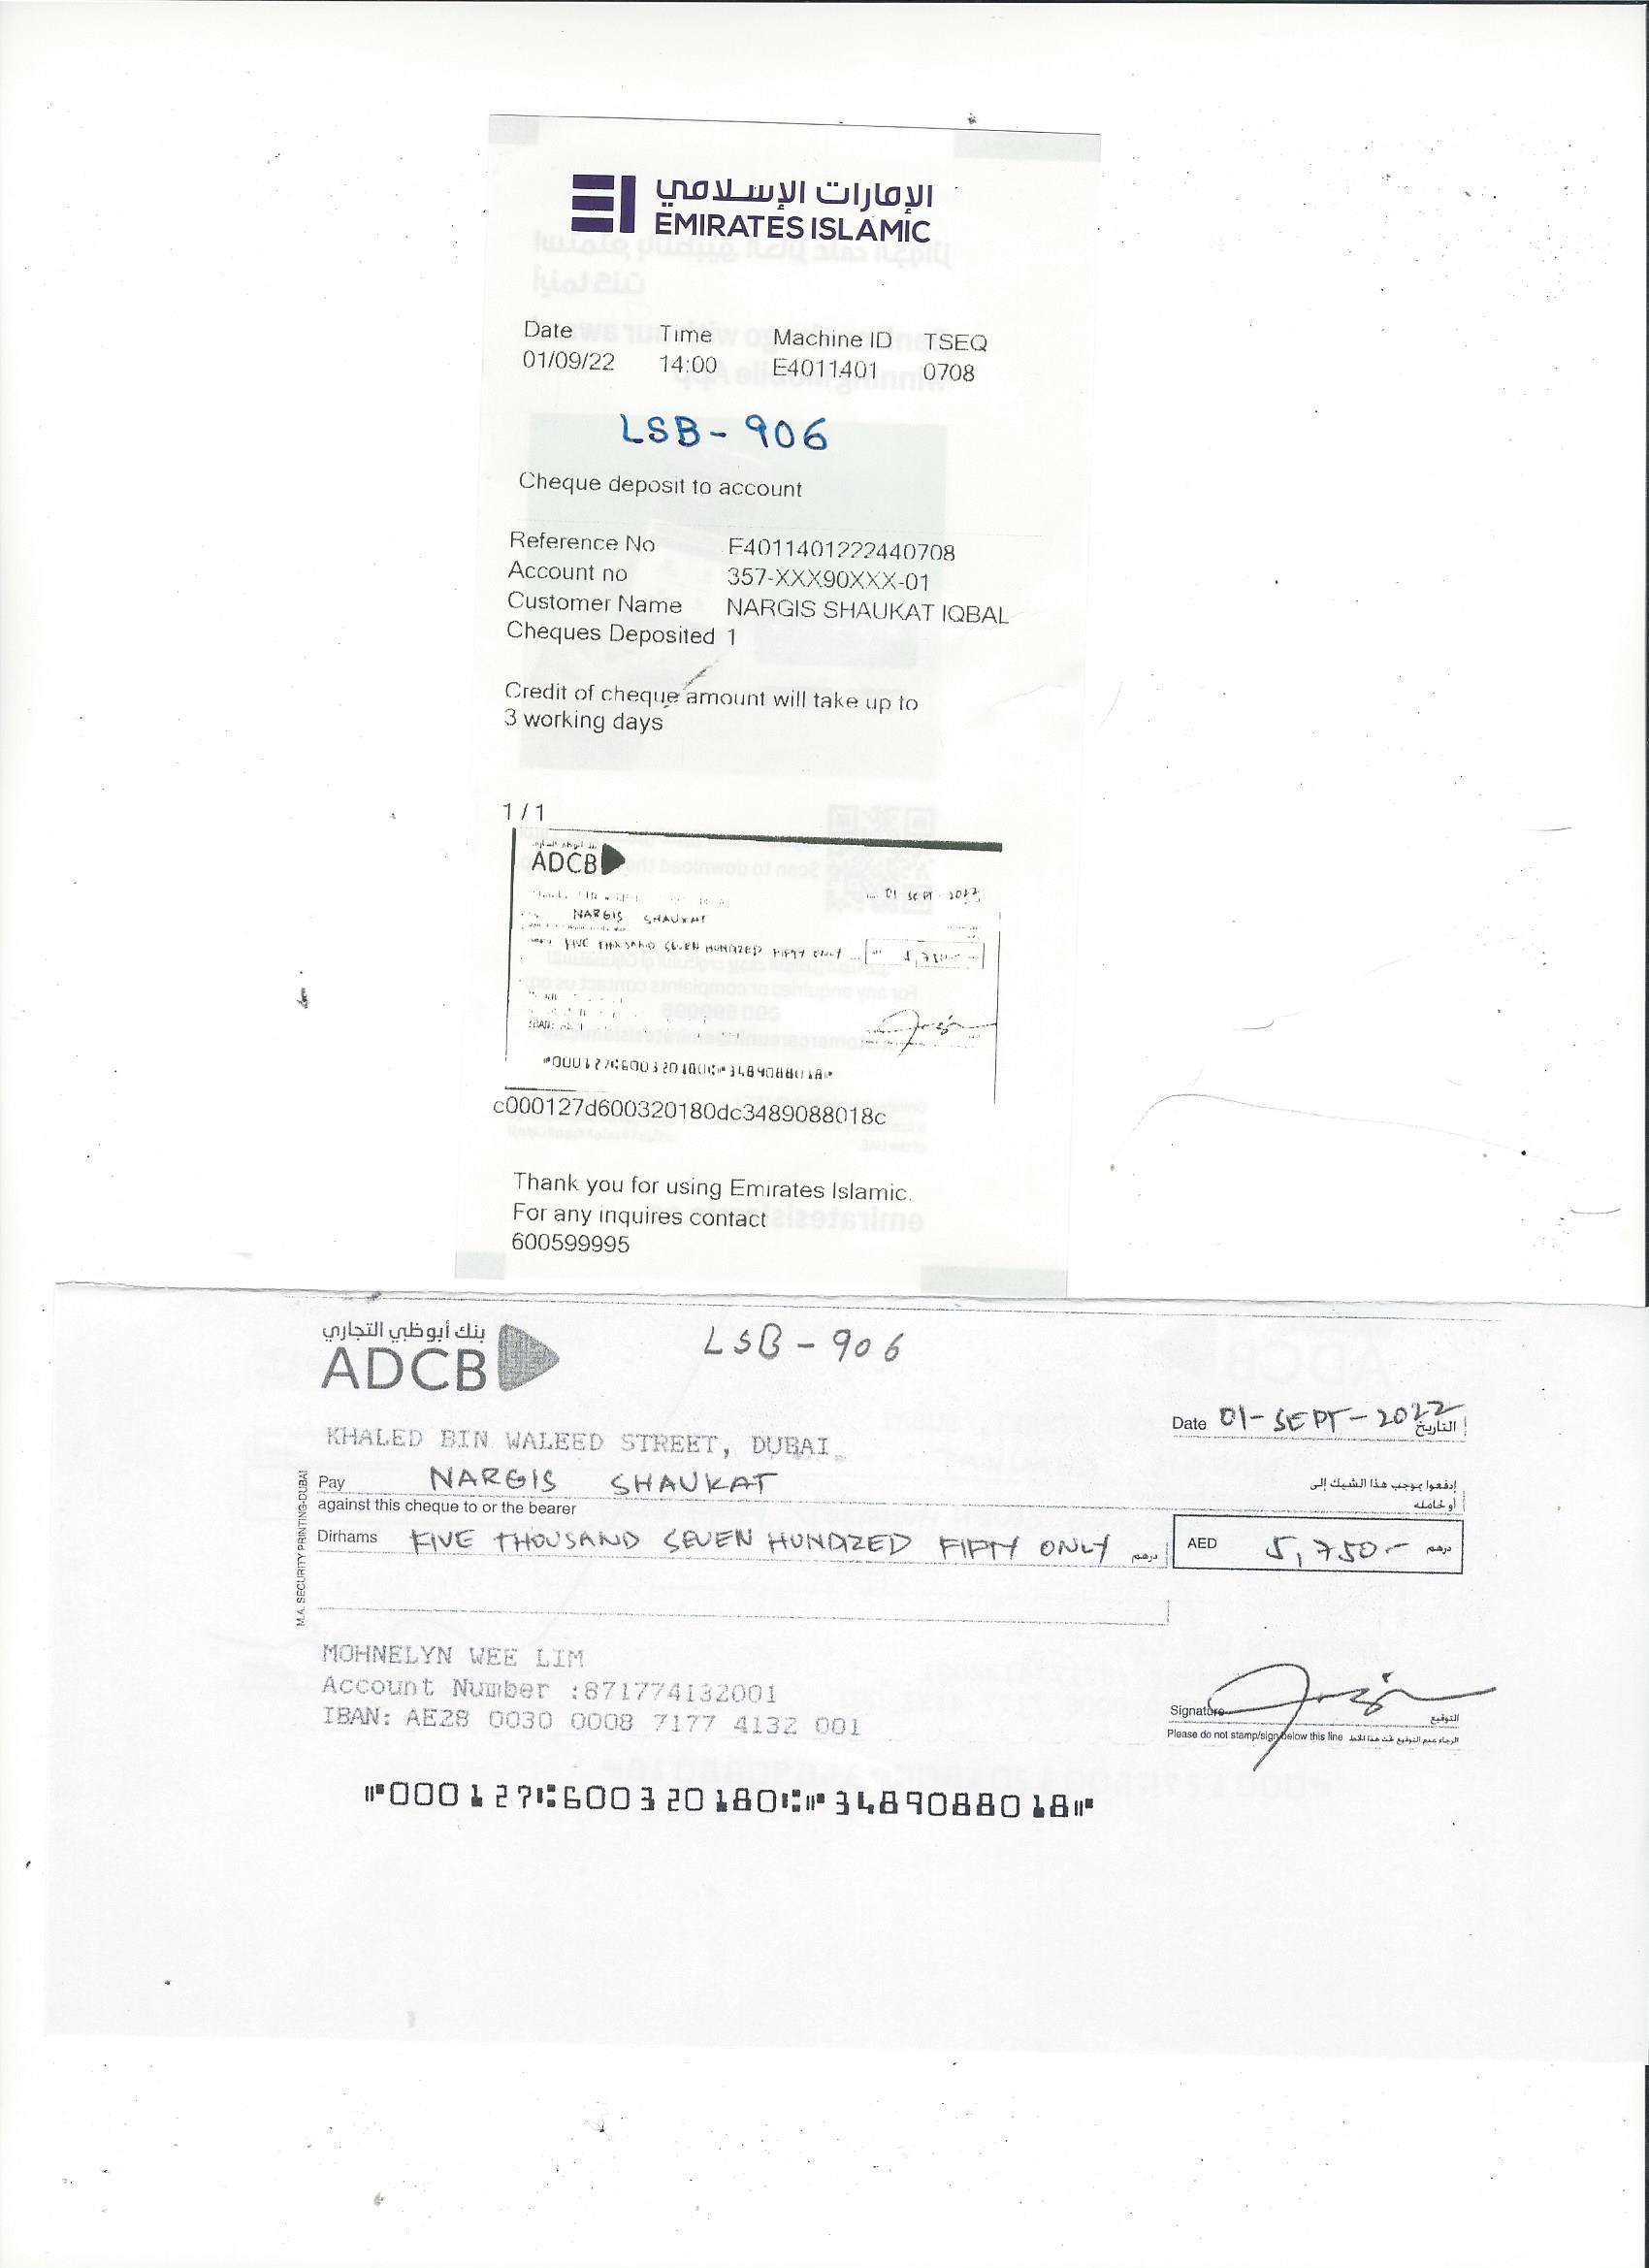 الإمارات الإسلامي
EMIRATES ISLAMIC
Date Time Machine ID TSEQ
01/09/22 14:00 E4011401 0708
LSB-906
Cheque deposit to account
Reference No E4011401222440708
Account no 357-XXX90XXX-01
Customer Name NARGIS SHAUKAT IQBAL
Cheques Deposited 1
Credit of cheque amount will take up to
3 working days
1 / 1
ADCB
01 SEPT - 2022
NARGIS SHAUKAT
FIVE THOUSAND SEVEN HUNDRED FIFTY ONLY 5,750.-
IBAN:
⑈000127⑆600320180⑆⑈3489088018⑈
c000127d600320180dc3489088018c
Thank you for using Emirates Islamic.
For any inquires contact
600599995
بنك أبوظبي التجاري
ADCB
LSB-906
Date 01-SEPT-2022 التاريخ
KHALED BIN WALEED STREET, DUBAI.
Pay NARGIS SHAUKAT إدفعوا بموجب هذا الشيك إلى
against this cheque to or the bearer أو لحامله
Dirhams FIVE THOUSAND SEVEN HUNDRED FIFTY ONLY درهم AED 5,750.- درهم
M.A. SECURITY PRINTING-DUBAI
MOHNELYN WEE LIM
Account Number :871774132001
IBAN: AE28 0030 0008 7177 4132 001
Signature التوقيع
Please do not stamp/sign below this line الرجاء عدم التوقيع تحت هذا الخط
⑈000127⑆600320180⑆⑈3489088018⑈